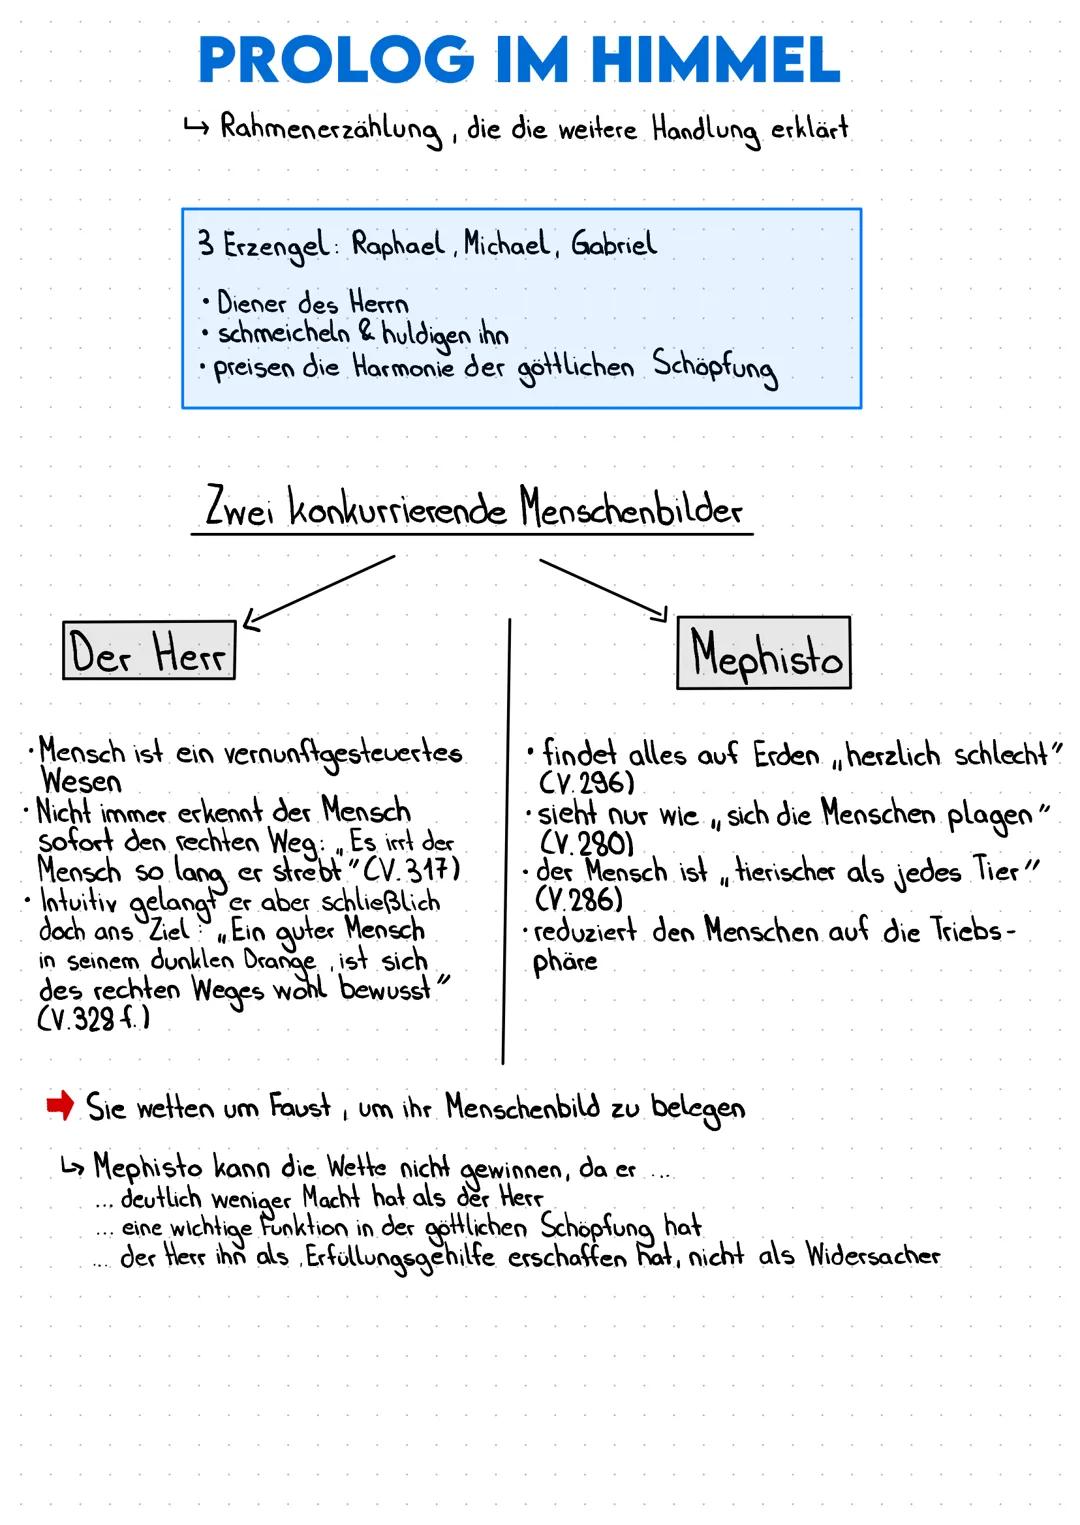 PROLOG IM HIMMEL
↳ Rahmenerzählung, die die weitere Handlung erklärt
3 Erzengel: Raphael, Michael, Gabriel
• Diener des Herrn
• schmeicheln & huldigen ihn
• preisen die Harmonie der göttlichen Schöpfung
Zwei konkurrierende Menschenbilder
Der Herr
• Mensch ist ein vernunftgesteuertes
Wesen
• Nicht immer erkennt der Mensch
sofort den rechten Weg: „Es irrt der
Mensch so lang er strebt" (V.317)
• Intuitiv gelangt er aber schließlich
doch ans Ziel: „Ein guter Mensch
in seinem dunklen Drange, ist sich
des rechten Weges wohl bewusst"
(V.328 f.)
Mephisto
• findet alles auf Erden „herzlich schlecht"
(V.296)
• sieht nur wie „sich die Menschen plagen"
(V.280)
• der Mensch ist „tierischer als jedes Tier"
(V.286)
• reduziert den Menschen auf die Triebs-
phäre
➡ Sie wetten um Faust, um ihr Menschenbild zu belegen
↳ Mephisto kann die Wette nicht gewinnen, da er ...
... deutlich weniger Macht hat als der Herr
... eine wichtige Funktion in der göttlichen Schöpfung hat
... der Herr ihn als Erfüllungsgehilfe erschaffen hat, nicht als Widersacher